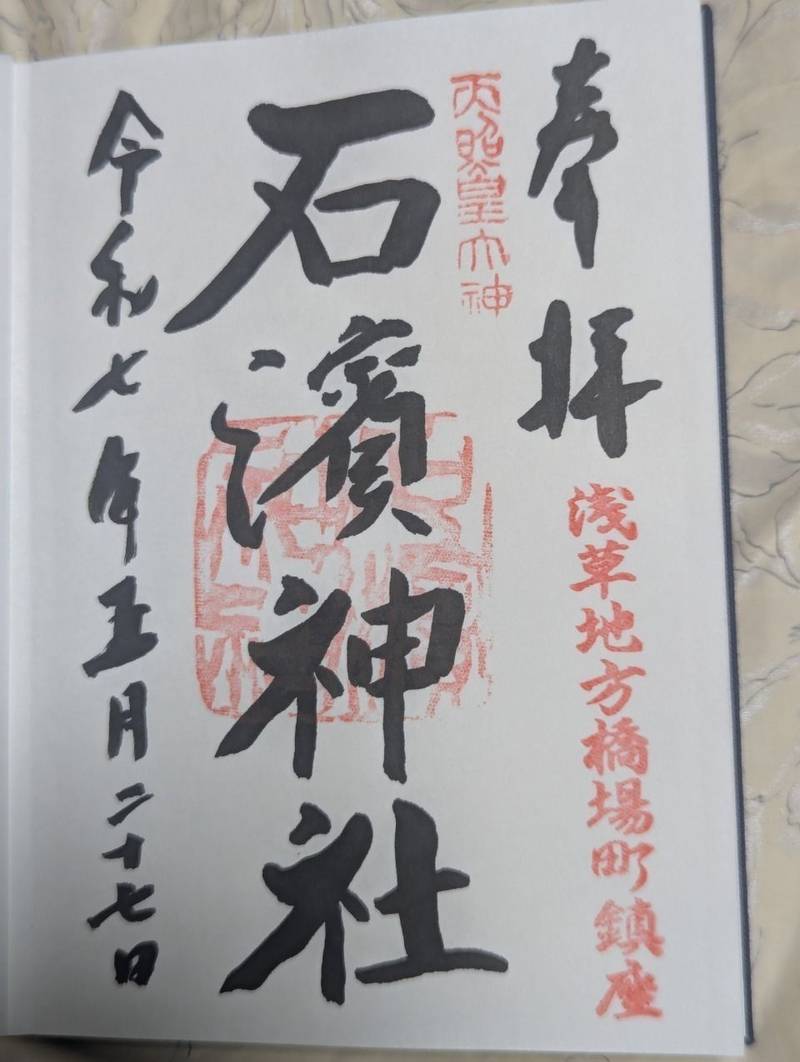 奉拝
浅草地方橋場町鎮座
天照皇大神
石濱神社
令和七年五月二十七日